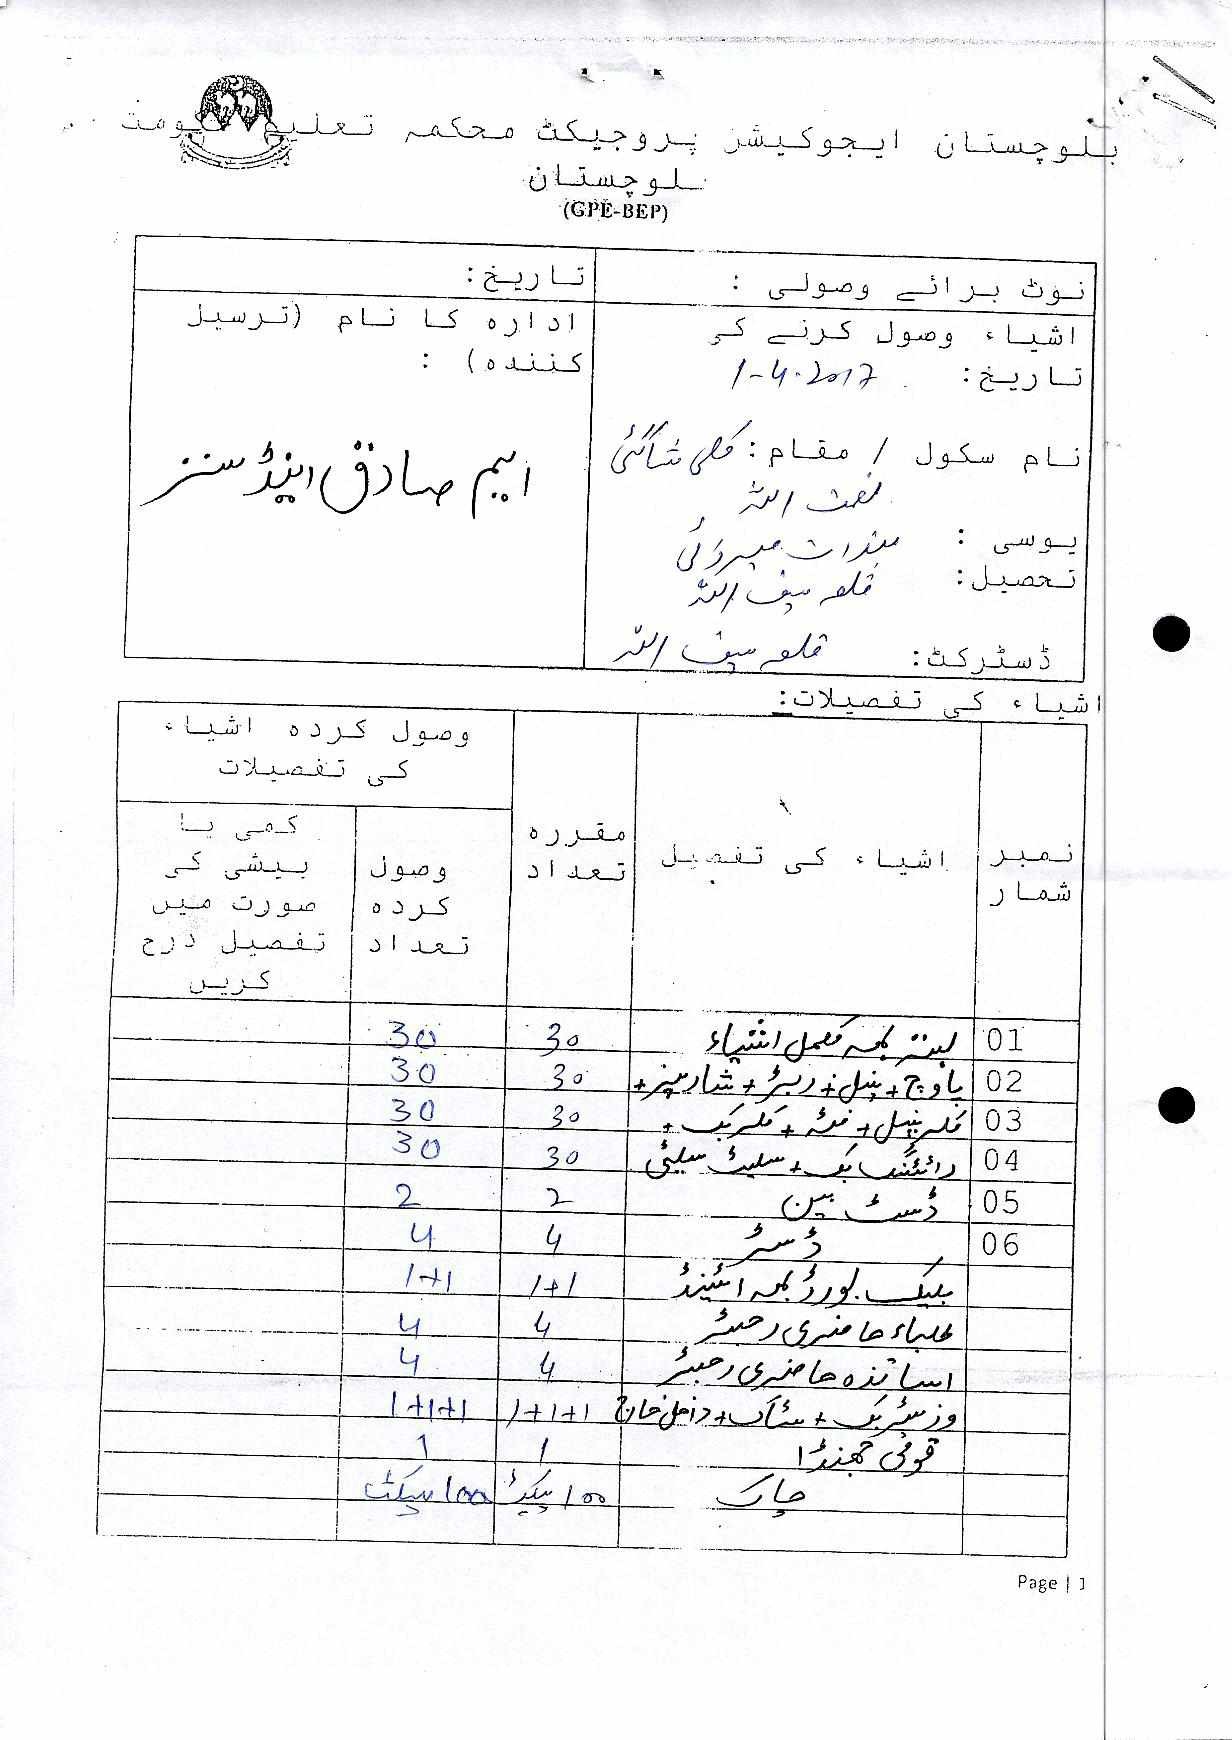 بلوچستان ایجوکیشن پروجیکٹ محکمہ تعلیم حکومت
بلوچستان
(GPE-BEP)
نوٹ برائے وصولی :
تاریخ:
اشیاء وصول کرنے کی
تاریخ: 1-4-2017
ادارہ کا نام (ترسیل
کنندہ) :
ایم صادق اینڈ سنز
نام سکول / مقام : کلی
نعمت اللہ
یوسی :
تحصیل: قلعہ سیف اللہ
ڈسٹرکٹ: قلعہ سیف اللہ
اشیاء کی تفصیلات:
نمبر شمار
اشیاء کی تفصیل
مقررہ تعداد
وصول کردہ اشیاء
کی تفصیلات
وصول کردہ تعداد
کمی یا
بیشی کی
صورت میں
تفصیل درج
کریں
01 بستہ بمعہ مکمل اشیاء 30 30
02 پاؤچ + پنسل + ربڑ + شارپنر + 30 30
03 کلر پنسل + فٹہ + کلر بک + 30 30
04 رائٹنگ بک + سلیٹ سلیٹی 30 30
05 ڈسٹ بین 2 2
06 ڈسٹر 4 4
بلیک بورڈ بمعہ اسٹینڈ 1+1 1+1
طلباء حاضری رجسٹر 4 4
اساتذہ حاضری رجسٹر 4 4
وزیٹر بک + سٹاک + داخل خارج 1+1+1 1+1+1
قومی جھنڈا 1 1
چاک 100 پیکٹ 100 پیکٹ
Page | 1